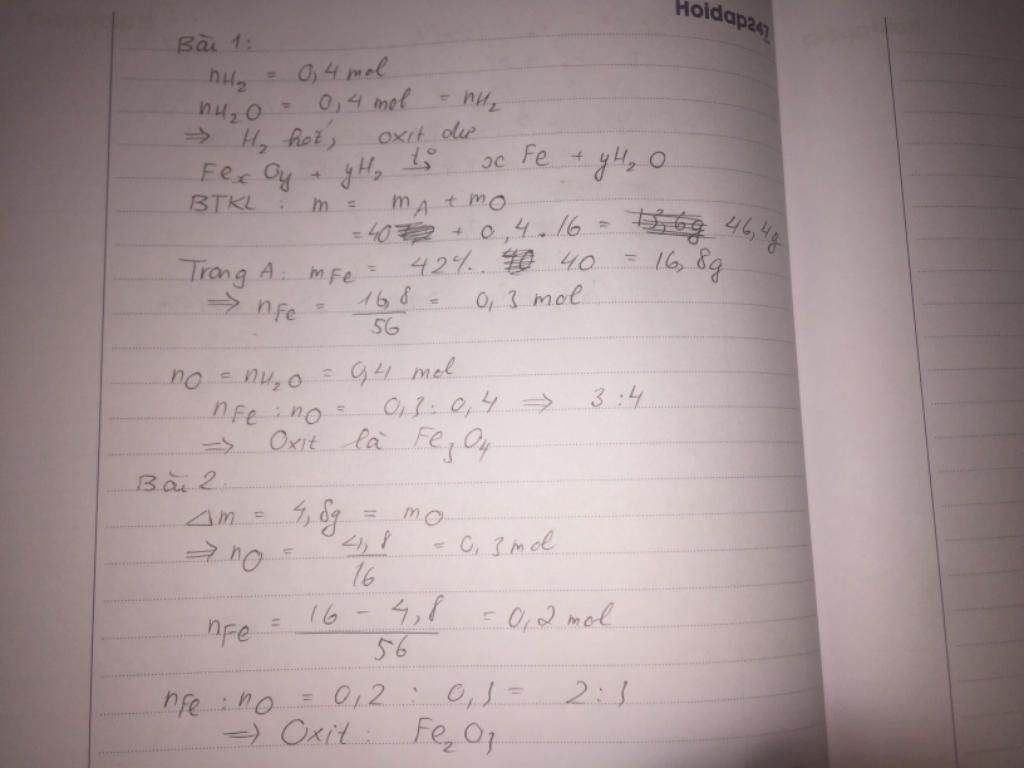 Hoidap247
Bài 1:
nH₂ = 0,4 mol
nH₂O = 0,4 mol = nH₂
⇒ H₂ hết, oxit dư
FexOy + yH₂ t°→ xFe + yH₂O
BTKL: m = mA + mO
= 40 + 0,4.16 = 46,4g
Trong A: mFe = 42%. 40 = 16,8g
⇒ nFe = 16,8/56 = 0,3 mol
nO = nH₂O = 0,4 mol
nFe : nO = 0,3 : 0,4 ⇒ 3:4
⇒ Oxit là Fe₃O₄
Bài 2:
Δm = 4,8g = mO
⇒ nO = 4,8/16 = 0,3 mol
nFe = (16 - 4,8)/56 = 0,2 mol
nFe : nO = 0,2 : 0,3 = 2:3
⇒ Oxit: Fe₂O₃